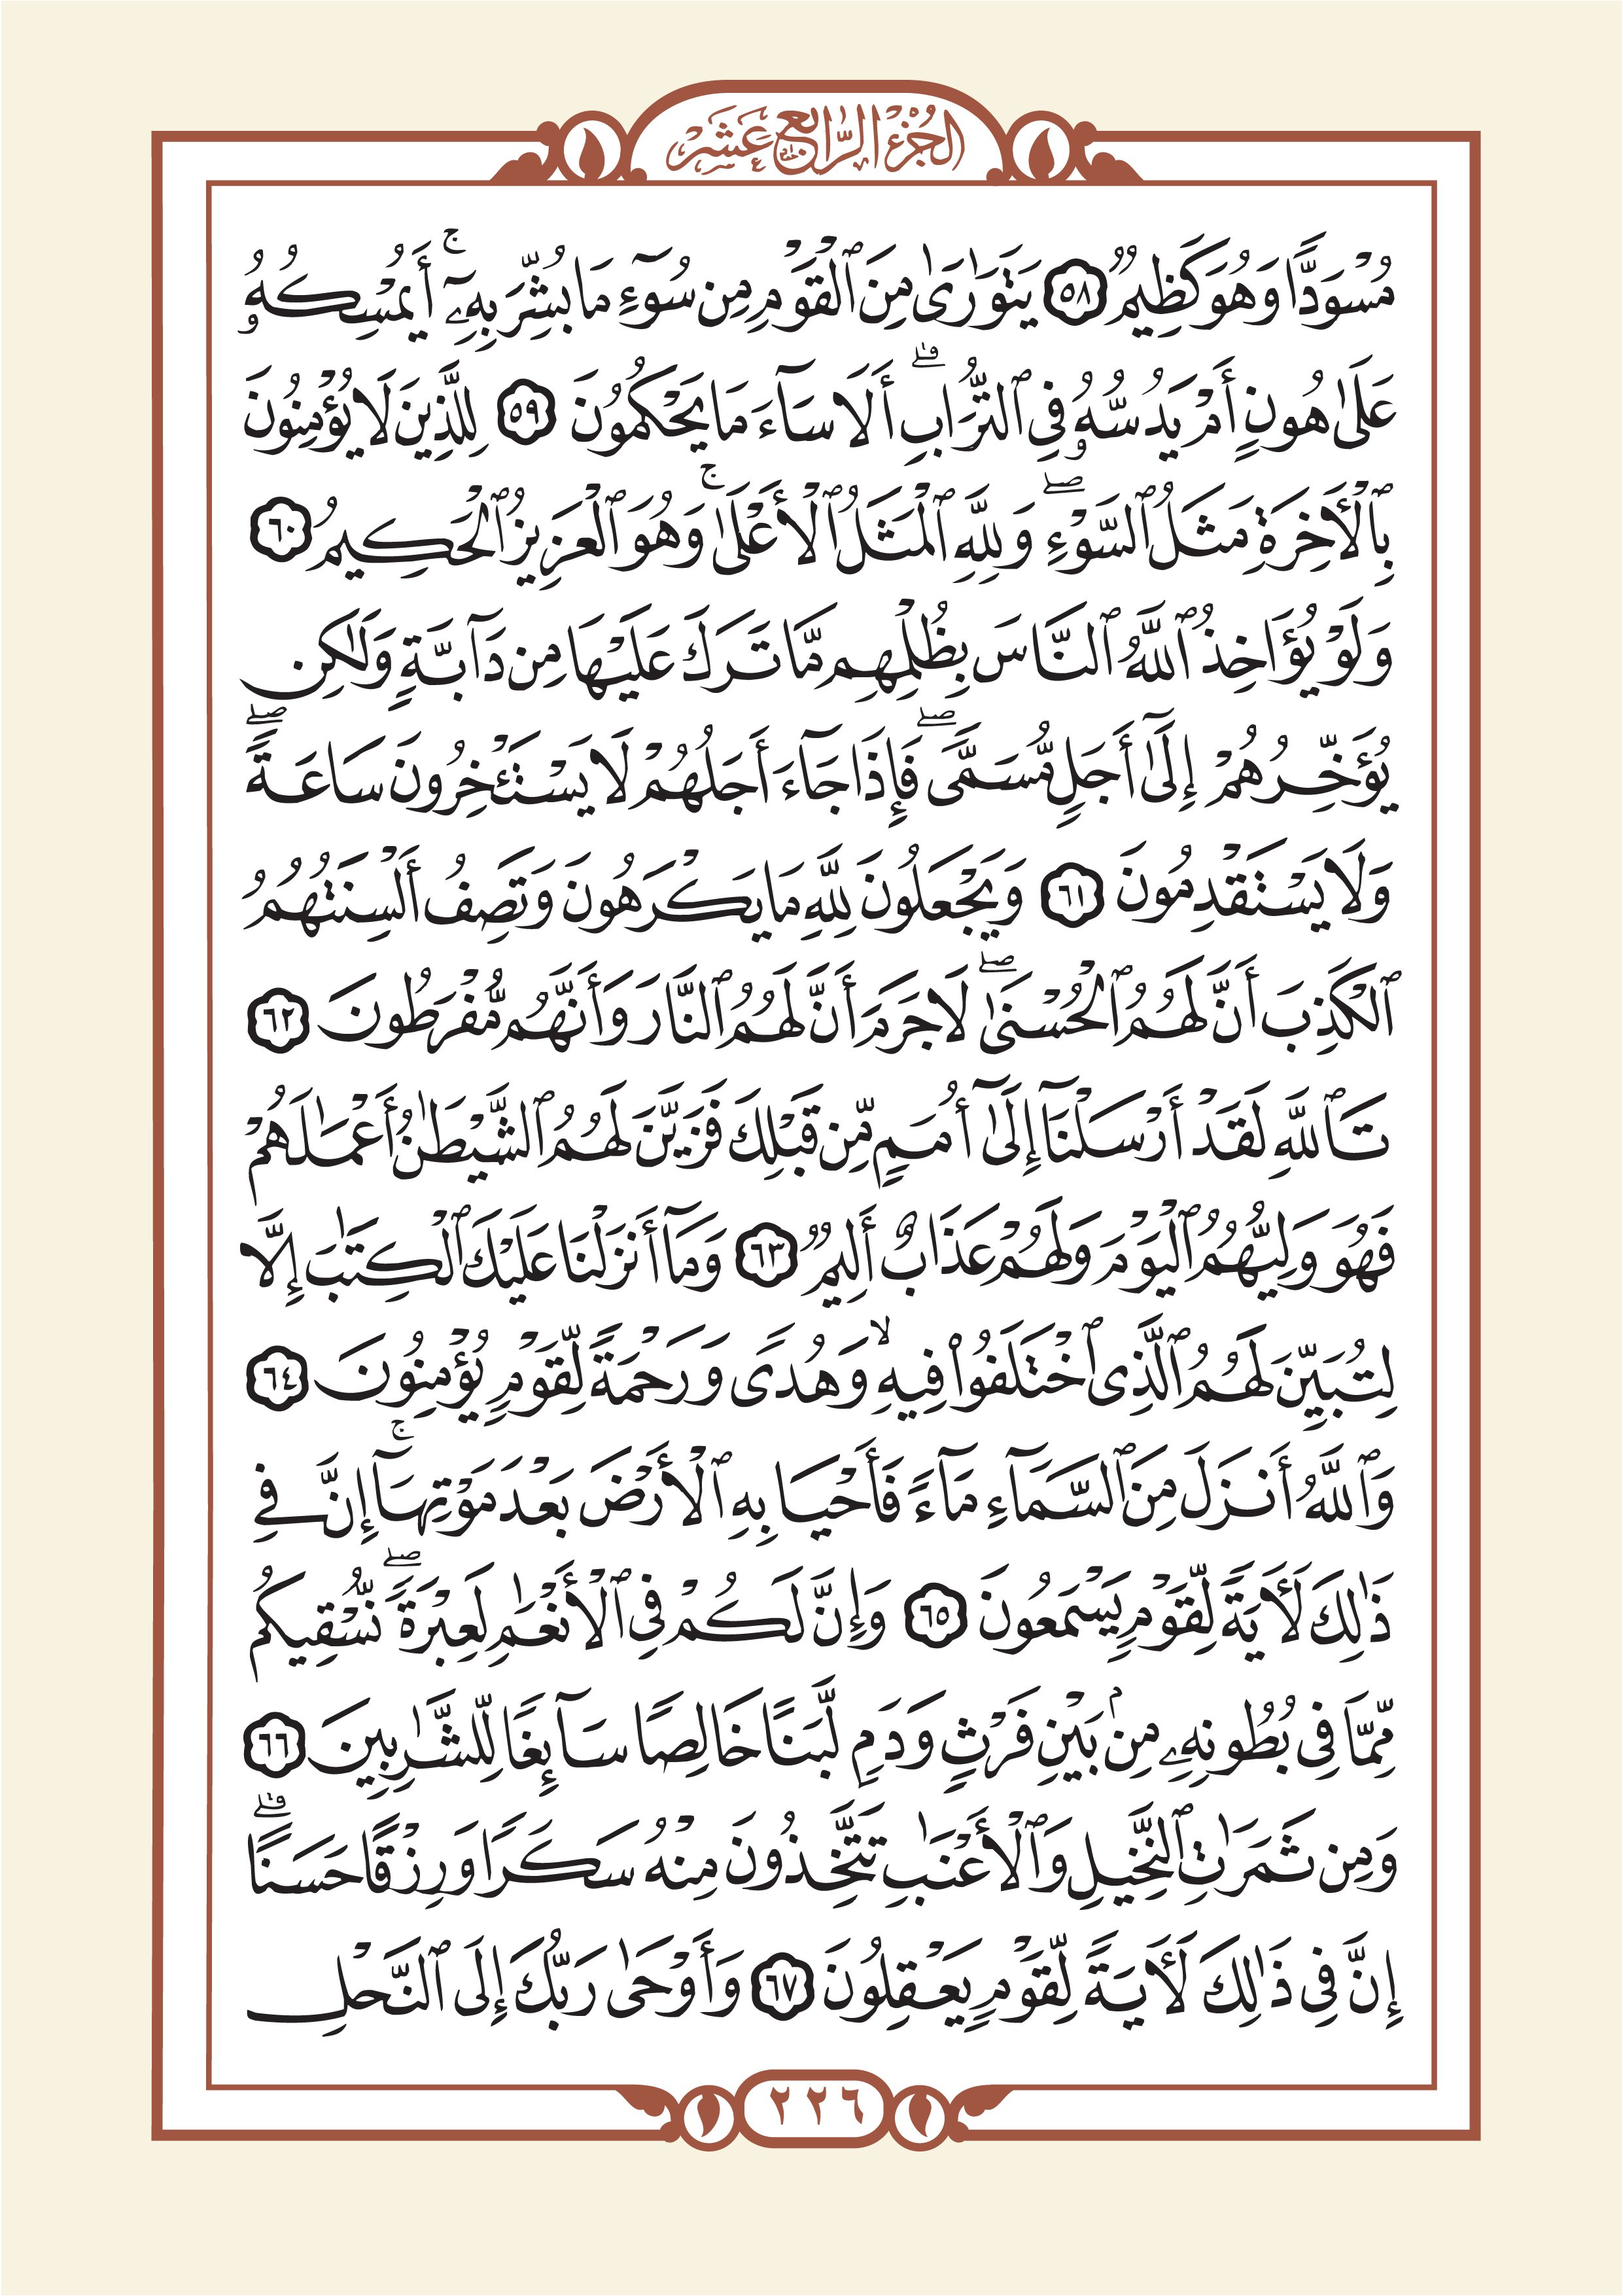 الجزء الرابع عشر
مُسْوَدًّا وَهُوَ كَظِيمٌ ٥٨ يَتَوَٰرَىٰ مِنَ ٱلْقَوْمِ مِن سُوٓءِ مَا بُشِّرَ بِهِۦٓ ۚ أَيُمْسِكُهُۥ
عَلَىٰ هُونٍ أَمْ يَدُسُّهُۥ فِى ٱلتُّرَابِ ۗ أَلَا سَآءَ مَا يَحْكُمُونَ ٥٩ لِلَّذِينَ لَا يُؤْمِنُونَ
بِٱلْأَخِرَةِ مَثَلُ ٱلسَّوْءِ ۖ وَلِلَّهِ ٱلْمَثَلُ ٱلْأَعْلَىٰ ۚ وَهُوَ ٱلْعَزِيزُ ٱلْحَكِيمُ ٦٠
وَلَوْ يُؤَاخِذُ ٱللَّهُ ٱلنَّاسَ بِظُلْمِهِم مَّا تَرَكَ عَلَيْهَا مِن دَآبَّةٍ وَلَٰكِن
يُؤَخِّرُهُمْ إِلَىٰٓ أَجَلٍ مُّسَمًّى ۖ فَإِذَا جَآءَ أَجَلُهُمْ لَا يَسْتَـْٔخِرُونَ سَاعَةً ۖ
وَلَا يَسْتَقْدِمُونَ ٦١ وَيَجْعَلُونَ لِلَّهِ مَا يَكْرَهُونَ وَتَصِفُ أَلْسِنَتُهُمُ
ٱلْكَذِبَ أَنَّ لَهُمُ ٱلْحُسْنَىٰ ۖ لَا جَرَمَ أَنَّ لَهُمُ ٱلنَّارَ وَأَنَّهُم مُّفْرَطُونَ ٦٢
تَٱللَّهِ لَقَدْ أَرْسَلْنَآ إِلَىٰٓ أُمَمٍ مِّن قَبْلِكَ فَزَيَّنَ لَهُمُ ٱلشَّيْطَٰنُ أَعْمَٰلَهُمْ
فَهُوَ وَلِيُّهُمُ ٱلْيَوْمَ وَلَهُمْ عَذَابٌ أَلِيمٌ ٦٣ وَمَآ أَنزَلْنَا عَلَيْكَ ٱلْكِتَٰبَ إِلَّا
لِتُبَيِّنَ لَهُمُ ٱلَّذِى ٱخْتَلَفُوا۟ فِيهِ ۙ وَهُدًى وَرَحْمَةً لِّقَوْمٍ يُؤْمِنُونَ ٦٤
وَٱللَّهُ أَنزَلَ مِنَ ٱلسَّمَآءِ مَآءً فَأَحْيَا بِهِ ٱلْأَرْضَ بَعْدَ مَوْتِهَآ ۚ إِنَّ فِى
ذَٰلِكَ لَأَيَةً لِّقَوْمٍ يَسْمَعُونَ ٦٥ وَإِنَّ لَكُمْ فِى ٱلْأَنْعَٰمِ لَعِبْرَةً ۖ نُّسْقِيكُم
مِّمَّا فِى بُطُونِهِۦ مِنۢ بَيْنِ فَرْثٍ وَدَمٍ لَّبَنًا خَالِصًا سَآئِغًا لِّلشَّٰرِبِينَ ٦٦
وَمِن ثَمَرَٰتِ ٱلنَّخِيلِ وَٱلْأَعْنَٰبِ تَتَّخِذُونَ مِنْهُ سَكَرًا وَرِزْقًا حَسَنًا ۗ
إِنَّ فِى ذَٰلِكَ لَأَيَةً لِّقَوْمٍ يَعْقِلُونَ ٦٧ وَأَوْحَىٰ رَبُّكَ إِلَى ٱلنَّحْلِ
٢٢٦